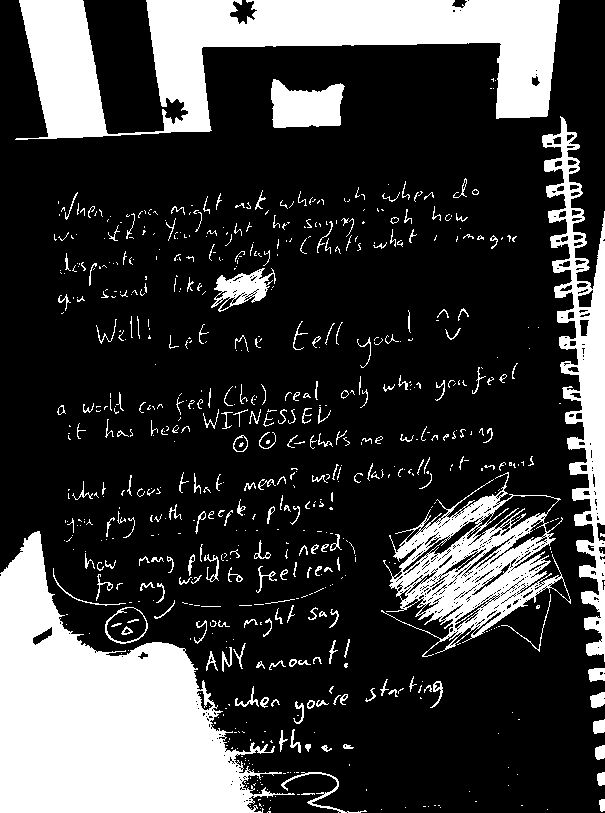 When, you might ask, when uh when do
we start. You might be saying: "oh how
desparate i am to play!" (that's what i imagine
you sound like,
Well! Let me tell you! ^^
a world can feel (be) real only when you feel
it has been WITNESSED
←that's me witnessing
what does that mean? well clasically it means
you play with people, players!
how many players do i need
for my world to feel real
you might say
ANY amount!
when you're starting
with...